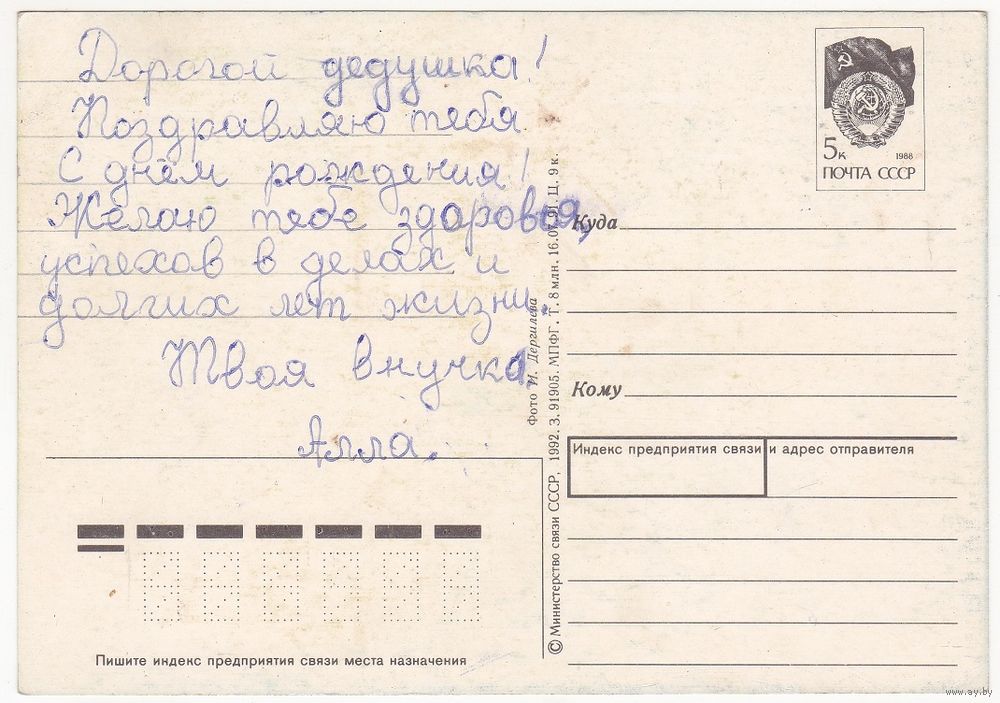 Дорогой дедушка!
Поздравляю тебя
С днём рождения!
Желаю тебе здоровья,
успехов в делах и
долгих лет жизни.
Твоя внучка
Алла.
5к 1988
ПОЧТА СССР
Куда
Кому
Индекс предприятия связи и адрес отправителя
Фото И. Дергилёва
© Министерство связи СССР, 1992. З. 91905. МПФГ. Т. 8 млн. 16.07.91. Ц. 9 к.
Пишите индекс предприятия связи места назначения
www.ay.by